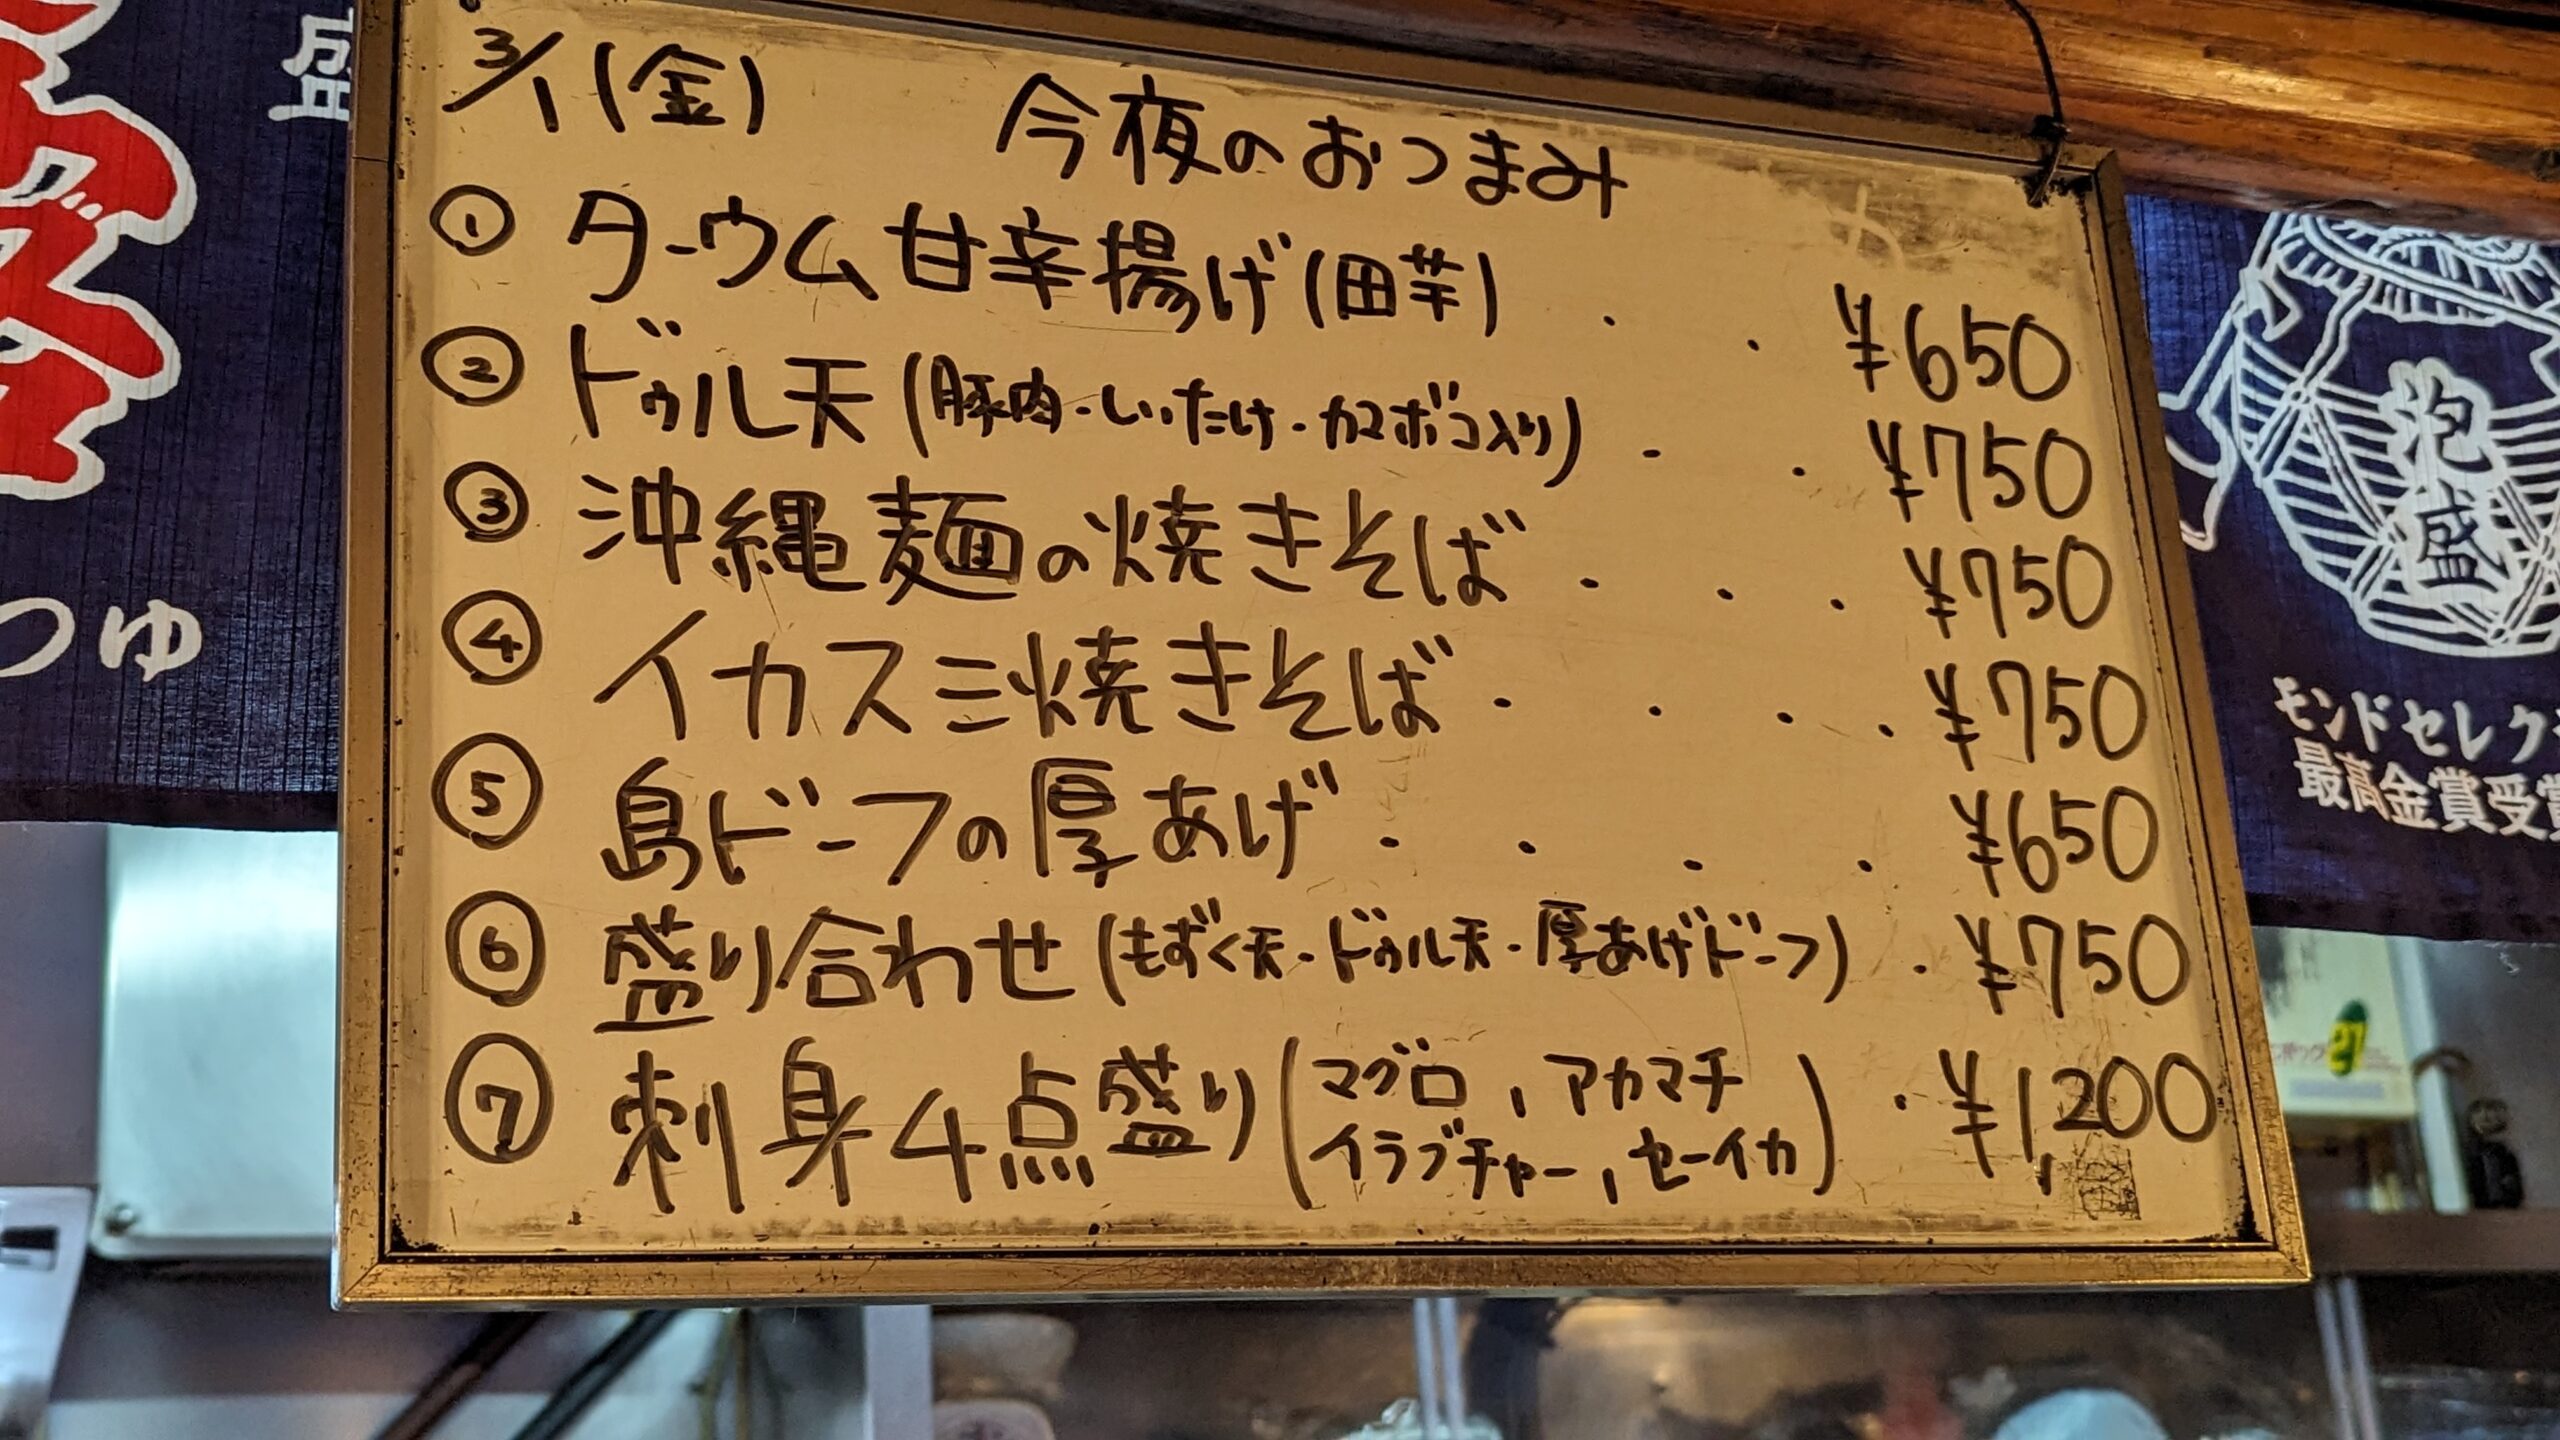 盛
つゆ
3/1(金)
今夜のおつまみ
① ターウム甘辛揚げ(田芋) . . ¥650
② ドゥル天(豚肉・しいたけ・カマボコ入り) . . ¥750
③ 沖縄麺の焼きそば . . . ¥750
④ イカスミ焼きそば . . . . ¥750
⑤ 島ドーフの厚あげ . . . . ¥650
⑥ 盛り合わせ(もずく天・ドゥル天・厚あげドーフ) . ¥750
⑦ 刺身4点盛り(マグロ, アカマチ
イラブチャー, セーイカ) . ¥1,200
泡盛
モンドセレク
最高金賞受賞